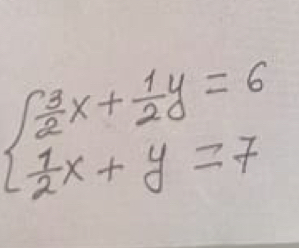 3/2x + 1/2y = 6
1/2x + y = 7